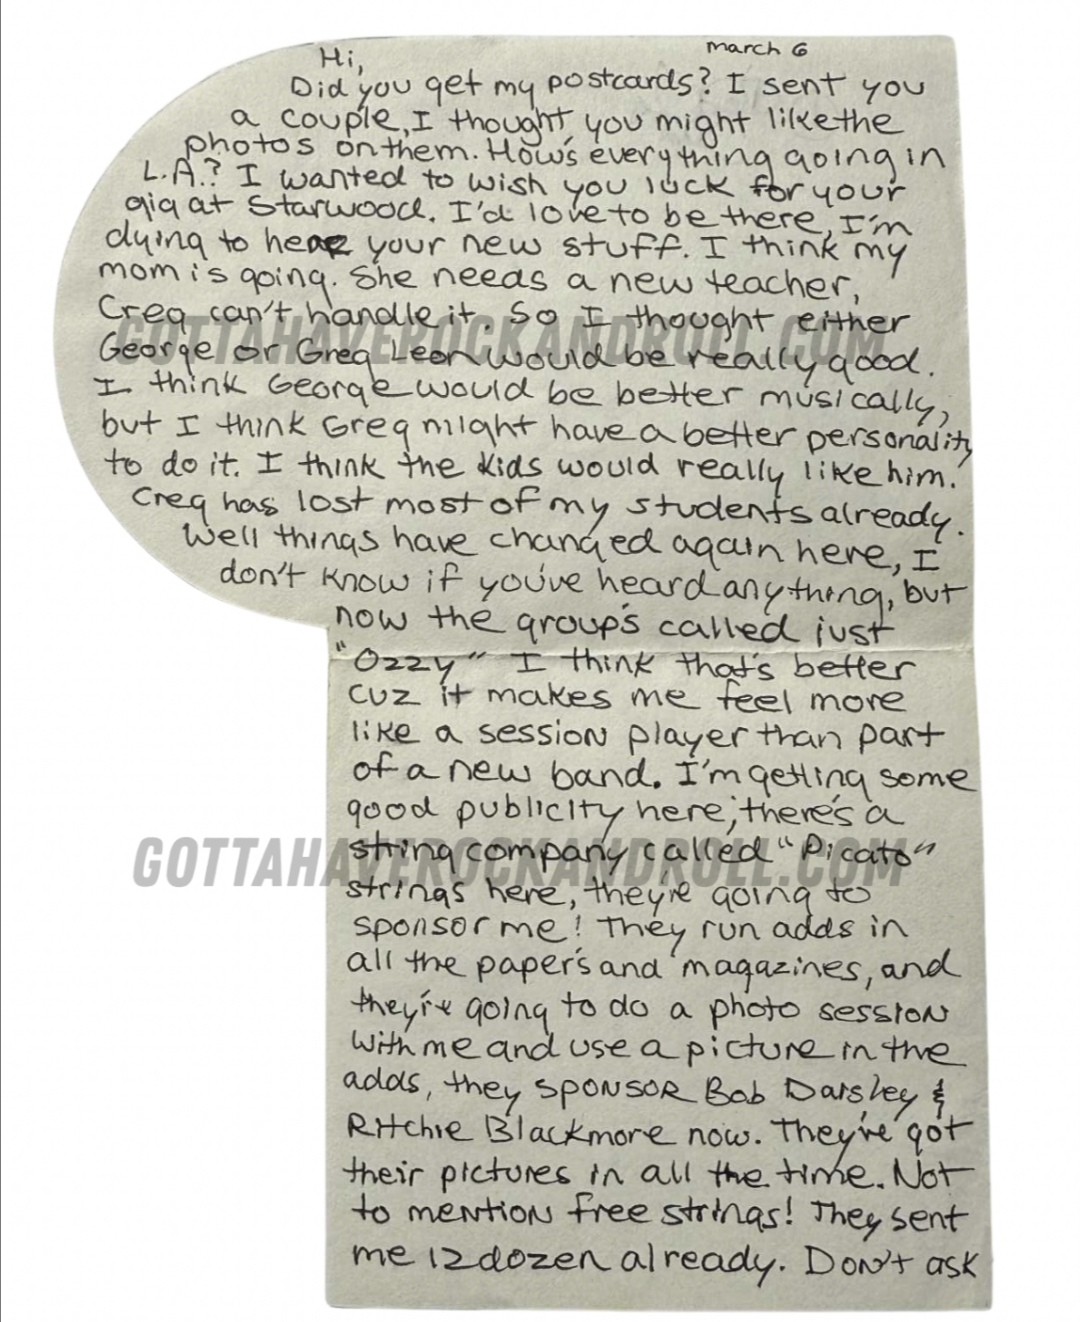 march 6
Hi,
Did you get my postcards? I sent you
a couple, I thought you might like the
photos on them. How's everything going in
L.A.? I wanted to wish you luck for your
gig at Starwood. I'd love to be there, I'm
dying to hear your new stuff. I think my
mom is going. She needs a new teacher,
Creg can't handle it. So I thought either
George or Greg Leon would be really good.
I think George would be better musically,
but I think Greg might have a better personality
to do it. I think the kids would really like him.
Creg has lost most of my students already.
Well things have changed again here, I
don't know if you've heard anything, but
now the group's called just
"Ozzy" I think that's better
cuz it makes me feel more
like a session player than part
of a new band. I'm getting some
good publicity here; there's a
string company called "Picato"
strings here, they're going to
sponsor me! They run adds in
all the paper's and magazines, and
they're going to do a photo session
with me and use a picture in the
adds, they sponsor Bob Daisley &
Ritchie Blackmore now. They've got
their pictures in all the time. Not
to mention free strings! They sent
me 12 dozen already. Don't ask
GOTTAHAVEROCKANDROLL.COM
GOTTAHAVEROCKANDROLL.COM